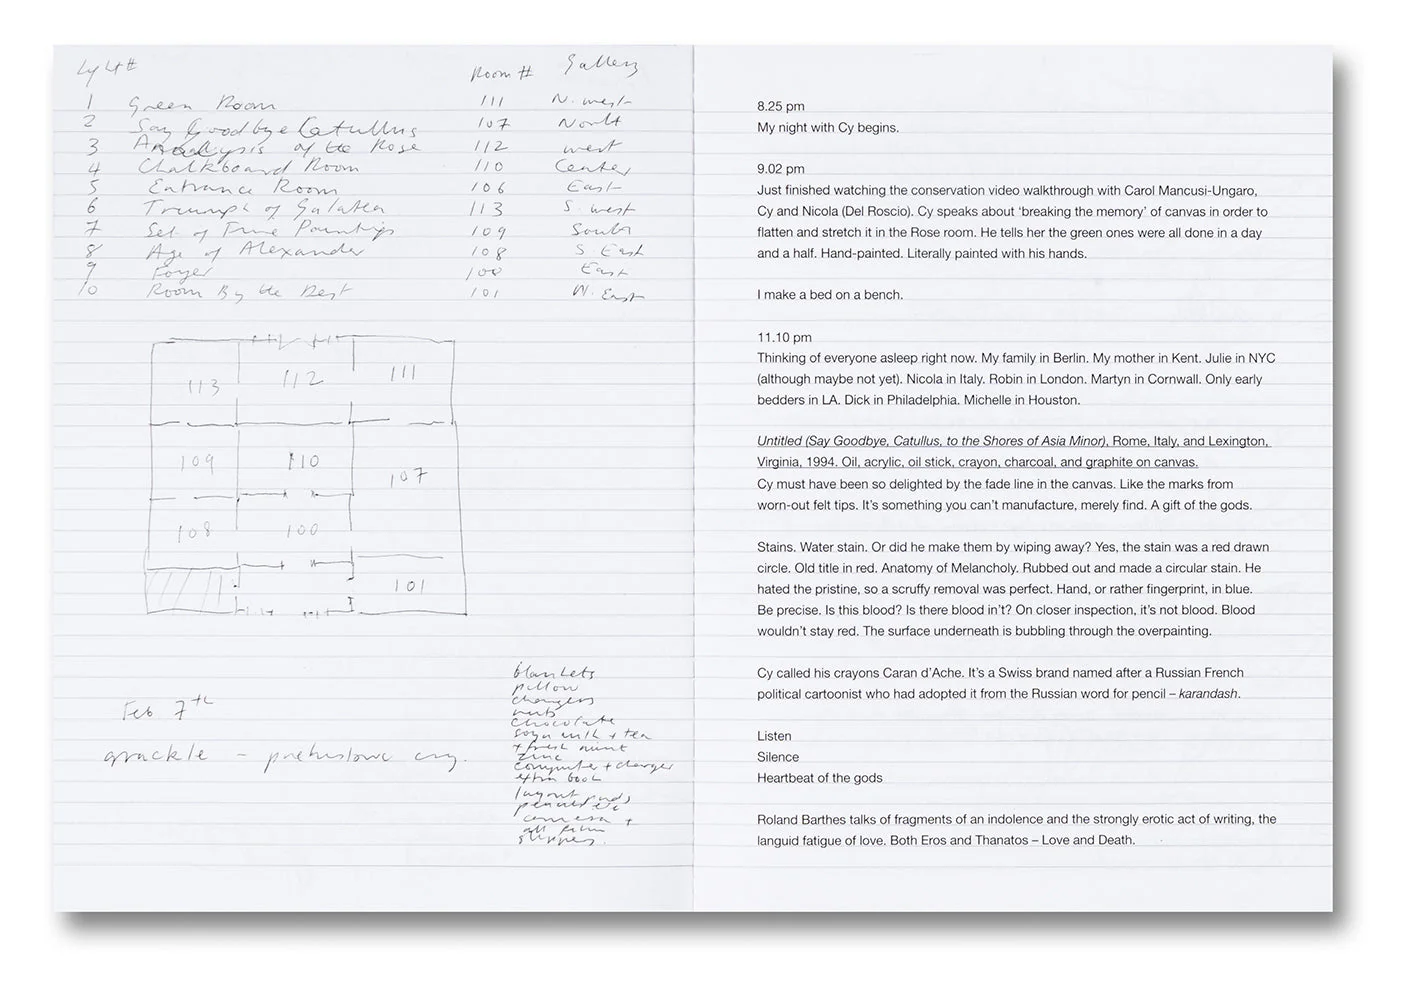 Room # Gallery
1 Green Room 111 N. west
2 Say Goodbye Catullus 107 North
3 Analysis of the Rose 112 west
4 Chalkboard Room 110 Center
5 Entrance Room 106 East
6 Triumph of Galatea 113 S. west
7 Set of Nine Paintings 109 South
8 Age of Alexander 108 S. East
9 Foyer 100 East
10 Room By the Desk 101 N. East
113 112 111
109 110 107
108 100
101
blankets
pillow
chargers
nuts
chocolate
soya milk + tea
+ fresh mint
zinc
computer + charger
extra book
layout pads
pencils etc
camera +
all film
slippers.
Feb 7th
grackle – prehistoric cry.
8.25 pm
My night with Cy begins.
9.02 pm
Just finished watching the conservation video walkthrough with Carol Mancusi-Ungaro,
Cy and Nicola (Del Roscio). Cy speaks about ‘breaking the memory’ of canvas in order to
flatten and stretch it in the Rose room. He tells her the green ones were all done in a day
and a half. Hand-painted. Literally painted with his hands.
I make a bed on a bench.
11.10 pm
Thinking of everyone asleep right now. My family in Berlin. My mother in Kent. Julie in NYC
(although maybe not yet). Nicola in Italy. Robin in London. Martyn in Cornwall. Only early
bedders in LA. Dick in Philadelphia. Michelle in Houston.
Untitled (Say Goodbye, Catullus, to the Shores of Asia Minor), Rome, Italy, and Lexington,
Virginia, 1994. Oil, acrylic, oil stick, crayon, charcoal, and graphite on canvas.
Cy must have been so delighted by the fade line in the canvas. Like the marks from
worn-out felt tips. It’s something you can’t manufacture, merely find. A gift of the gods.
Stains. Water stain. Or did he make them by wiping away? Yes, the stain was a red drawn
circle. Old title in red. Anatomy of Melancholy. Rubbed out and made a circular stain. He
hated the pristine, so a scruffy removal was perfect. Hand, or rather fingerprint, in blue.
Be precise. Is this blood? Is there blood in’t? On closer inspection, it’s not blood. Blood
wouldn’t stay red. The surface underneath is bubbling through the overpainting.
Cy called his crayons Caran d’Ache. It’s a Swiss brand named after a Russian French
political cartoonist who had adopted it from the Russian word for pencil – karandash.
Listen
Silence
Heartbeat of the gods
Roland Barthes talks of fragments of an indolence and the strongly erotic act of writing, the
languid fatigue of love. Both Eros and Thanatos – Love and Death.